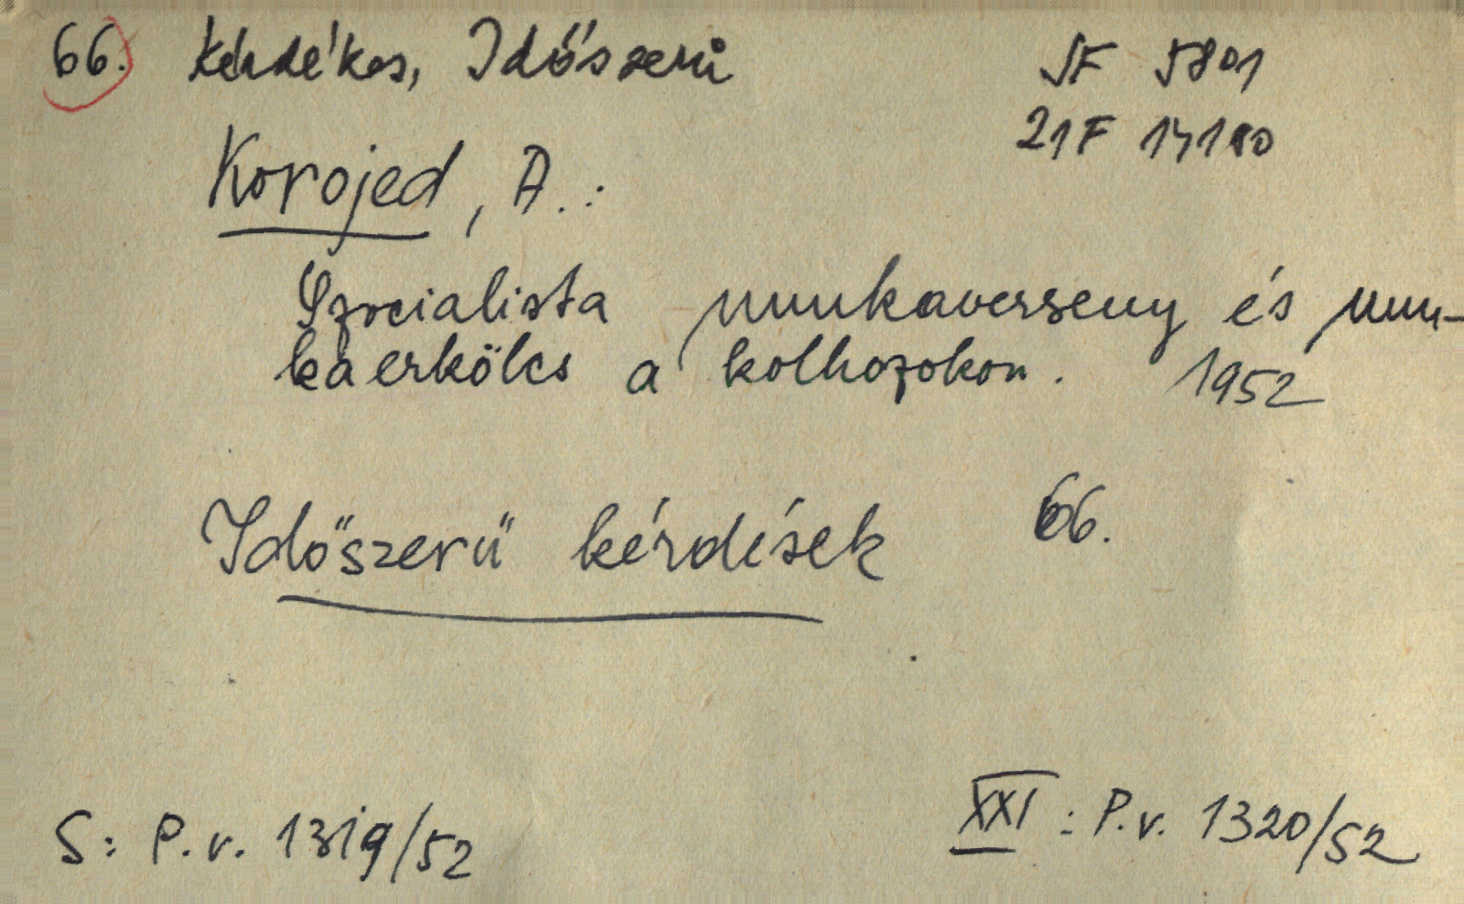 66. Kérdések, Időszerű
SF 5801
21F 14180
Korojed, A.:
Szocialista munkaverseny és mun-
kaerkölcs a kolhozokon. 1952
Időszerű kérdések 66.
S: P.v. 1319/52
XXI: P.v. 1320/52